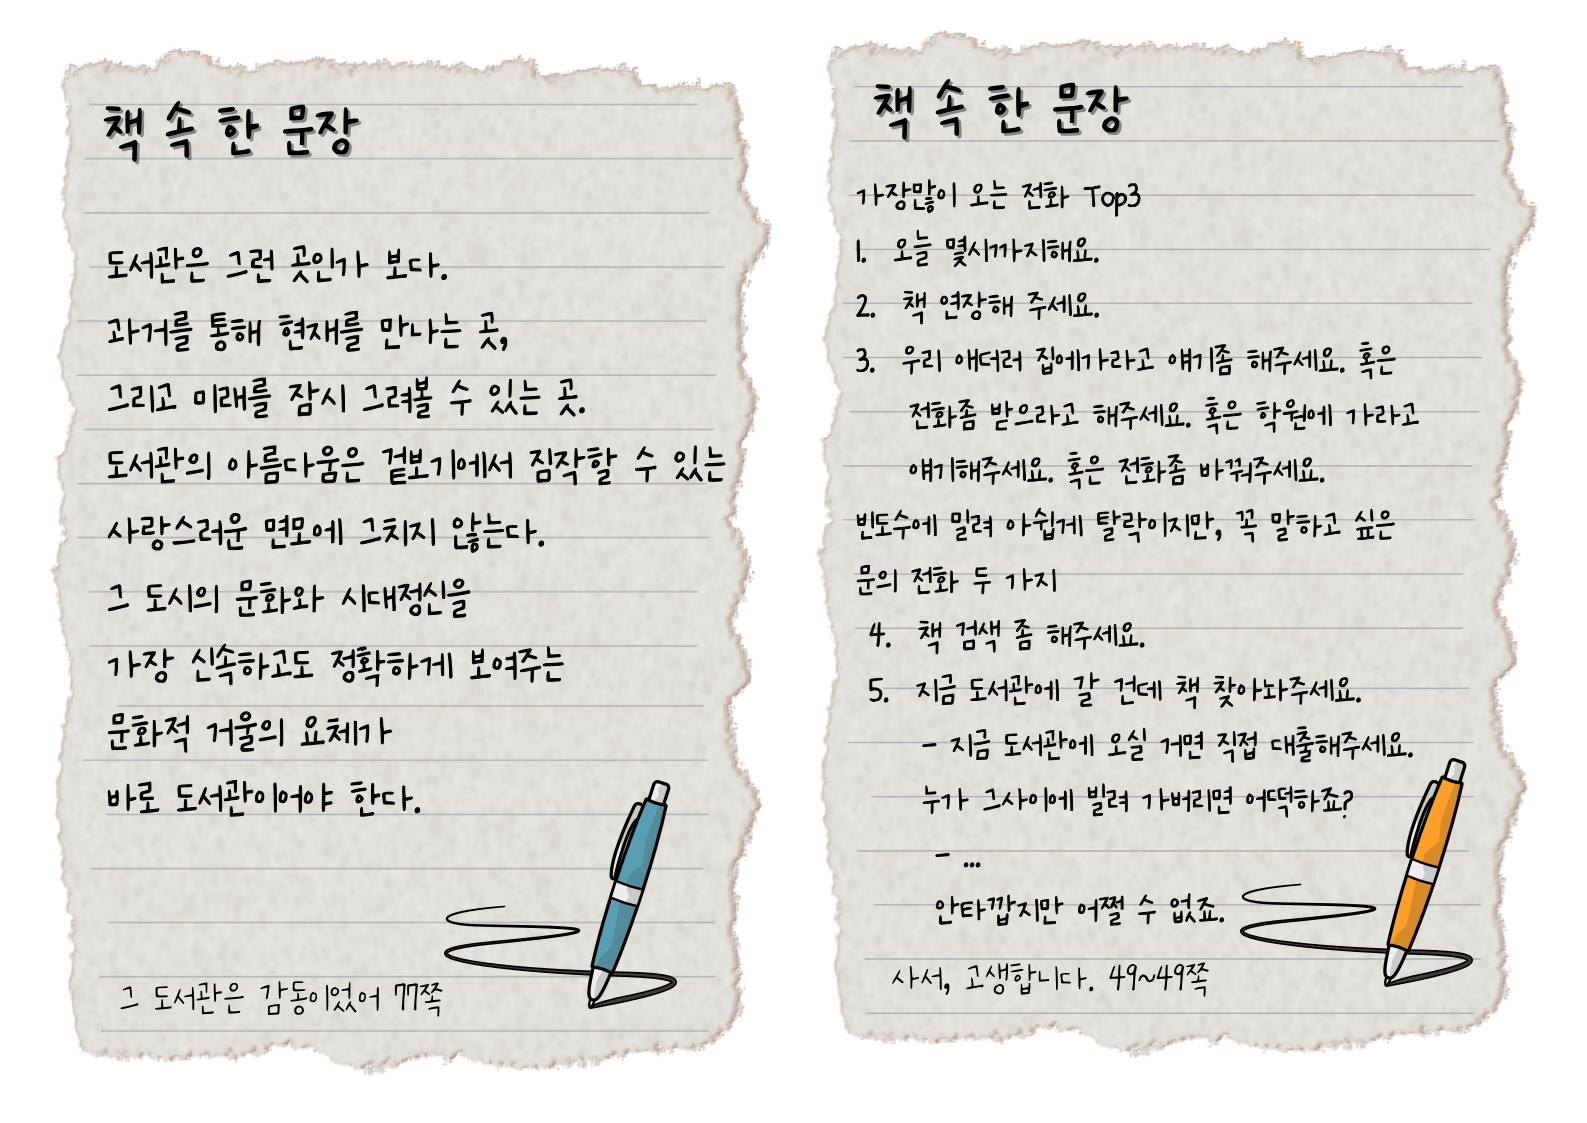 책 속 한 문장
도서관은 그런 곳인가 보다.
과거를 통해 현재를 만나는 곳,
그리고 미래를 잠시 그려볼 수 있는 곳.
도서관의 아름다움은 겉보기에서 짐작할 수 있는
사랑스러운 면모에 그치지 않는다.
그 도시의 문화와 시대정신을
가장 신속하고도 정확하게 보여주는
문화적 거울의 요체가
바로 도서관이어야 한다.
그 도서관은 감동이었어 77쪽
책 속 한 문장
가장많이 오는 전화 Top3
1. 오늘 몇시까지해요.
2. 책 연장해 주세요.
3. 우리 애더러 집에가라고 얘기좀 해주세요. 혹은
전화좀 받으라고 해주세요. 혹은 학원에 가라고
얘기해주세요. 혹은 전화좀 바꿔주세요.
빈도수에 밀려 아쉽게 탈락이지만, 꼭 말하고 싶은
문의 전화 두 가지
4. 책 검색 좀 해주세요.
5. 지금 도서관에 갈 건데 책 찾아놔주세요.
- 지금 도서관에 오실 거면 직접 대출해주세요.
누가 그사이에 빌려 가버리면 어떡하죠?
- ...
안타깝지만 어쩔 수 없죠.
사서, 고생합니다. 49~49쪽